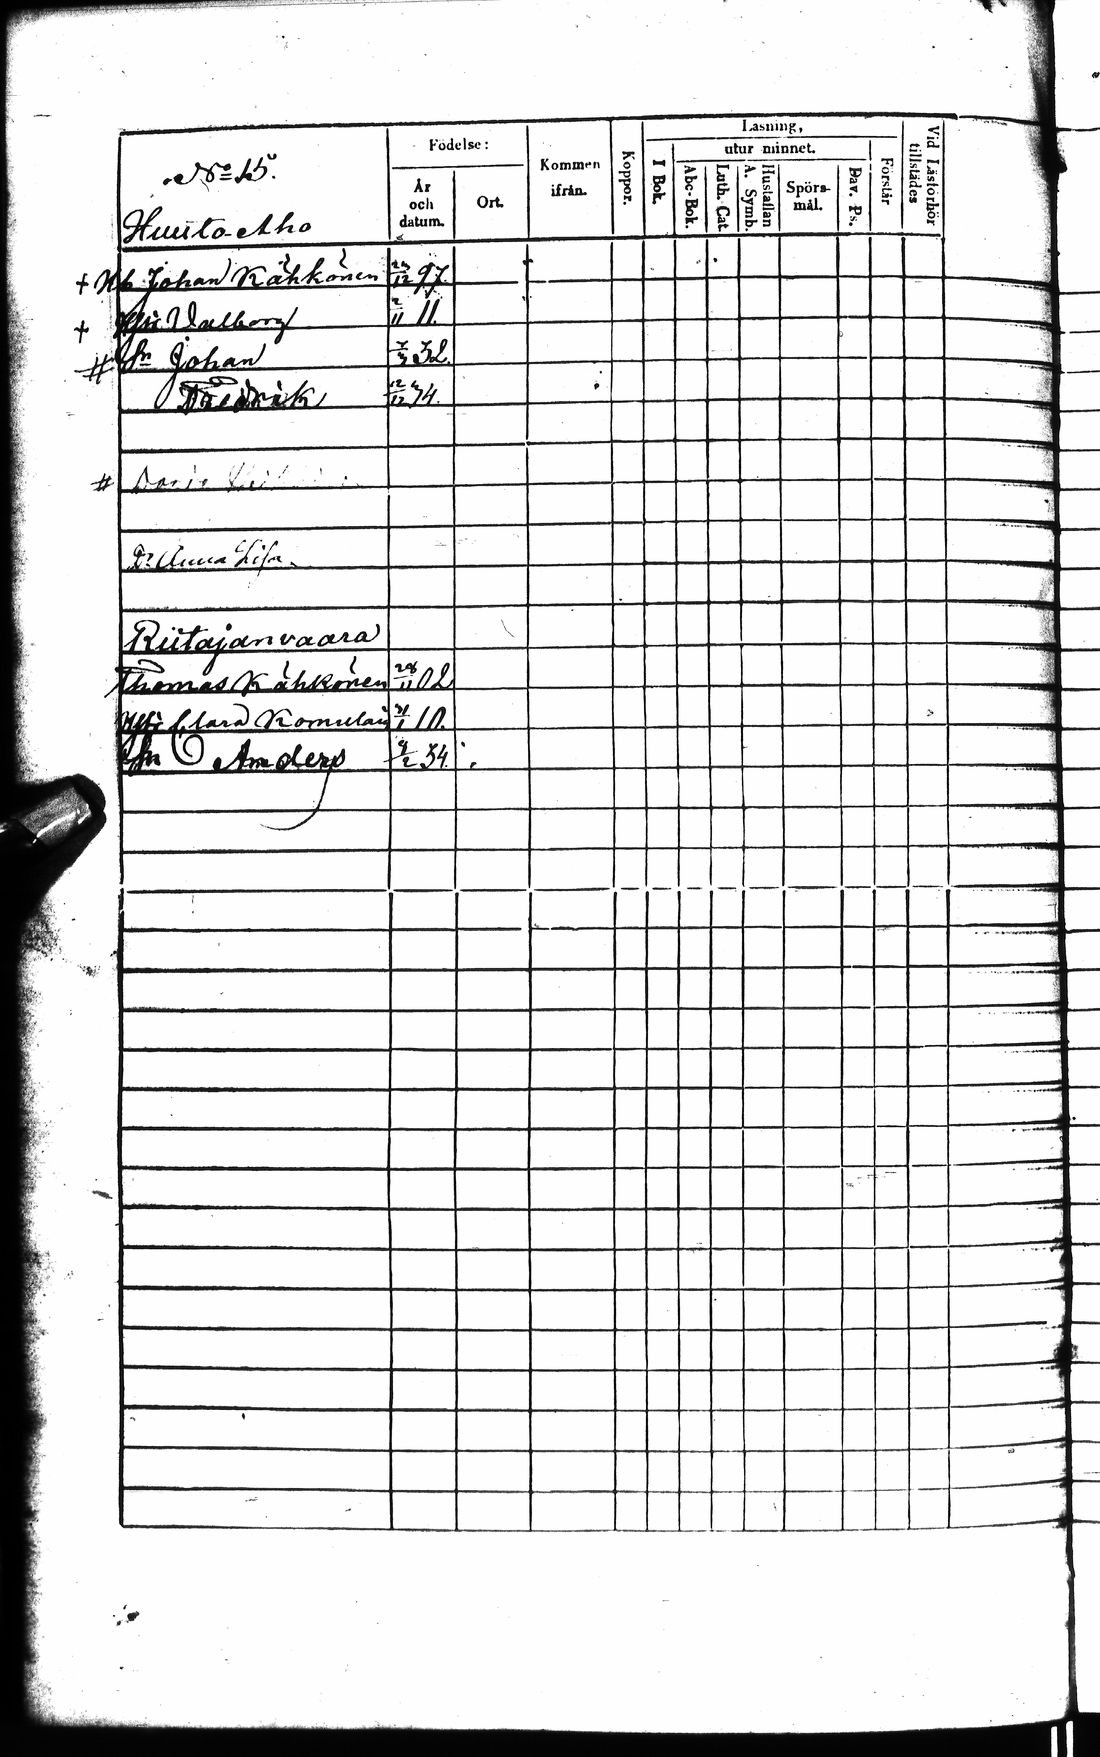 Läsning,
Födelse:
utur minnet.
No 15.
Kommen ifrån.
Koppor.
I Bok.
Abc-Bok.
Luth. Cat.
Hustaflan A. Symb.
Spörsmål.
Dav. Ps.
Förstår
Vid Läsförhör tillstädes
År och datum.
Ort.
Huuto-Aho
+ Johan Kähkönen 12 97.
+ Hu Valborg 2/11 11.
# Sn Johan 7/3 32.
Fredrik 12/12 34.
#
Dr Anna Lisa
Riitajanvaara
Thomas Kähkönen 28/11 02
Hu Clara Komulain 31/1 10.
Sn Anders 4/2 34.